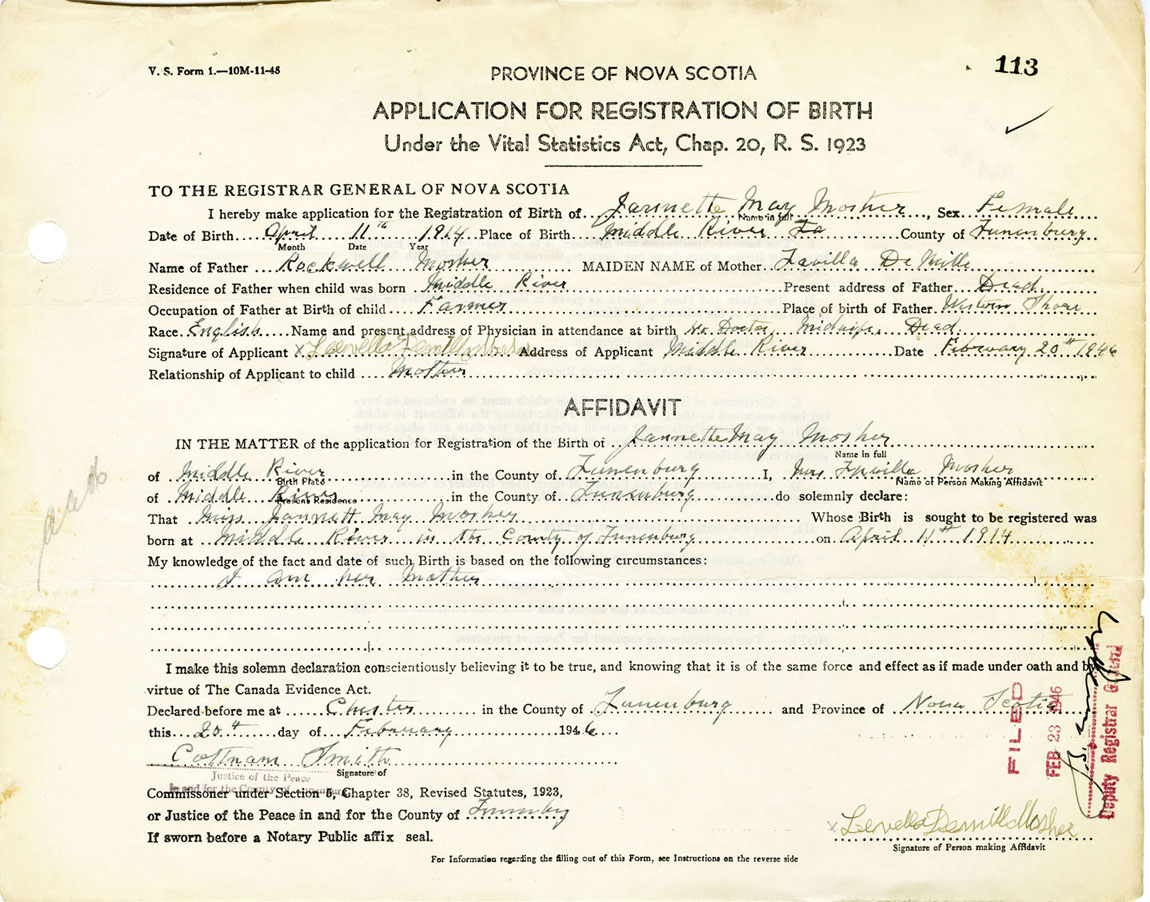 V. S. Form 1.—10M-11-48
113
PROVINCE OF NOVA SCOTIA
APPLICATION FOR REGISTRATION OF BIRTH
Under the Vital Statistics Act, Chap. 20, R. S. 1923
TO THE REGISTRAR GENERAL OF NOVA SCOTIA
I hereby make application for the Registration of Birth of Jannette May Mosher, Sex Female
Name in full
Date of Birth April 11th 1914 Place of Birth Middle River County of Lunenburg
Month Date Year
Name of Father Rockwell Mosher MAIDEN NAME of Mother Lavilla
Residence of Father when child was born Middle River Present address of Father Dead
Occupation of Father at Birth of child Farmer Place of birth of Father Western Shore
Race English Name and present address of Physician in attendance at birth No Doctor, Midwife, Dead
Signature of Applicant x Address of Applicant Middle River Date February 20th 1946
Relationship of Applicant to child Mother
AFFIDAVIT
IN THE MATTER of the application for Registration of the Birth of Jannette May Mosher
Name in full
of Middle River in the County of Lunenburg I, Mrs Lavilla Mosher
Birth Place Name of Person Making Affidavit
of Middle River in the County of Lunenburg do solemnly declare:
Present Residence
That Miss Jannett May Mosher Whose Birth is sought to be registered was
born at Middle River in the County of Lunenburg on April 11th 1914
My knowledge of the fact and date of such Birth is based on the following circumstances:
I am her Mother
I make this solemn declaration conscientiously believing it to be true, and knowing that it is of the same force and effect as if made under oath and by
virtue of The Canada Evidence Act.
Declared before me at Chester in the County of Lunenburg and Province of Nova Scotia
this 20th day of February 1946
Cottnam Smith
Justice of the Peace
Signature of
In and for the County of Lunenburg
Commissoner under Section 5, Chapter 38, Revised Statutes, 1923,
or Justice of the Peace in and for the County of
If sworn before a Notary Public affix seal.
x Levella Demill Mosher
Signature of Person making Affidavit
For Information regarding the filling out of this Form, see Instructions on the reverse side
FILED
FEB 23 1946
Deputy Registrar General